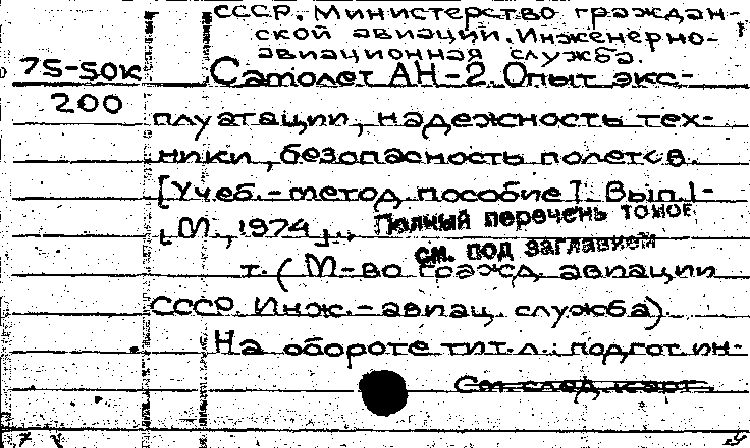 СССР. Министерство граждан-
ской авиации. Инженерно-
авиационная служба.
75-50к Самолет АН-2. Опыт экс-
200
плуатации, надежность тех-
ники, безопасность полетов.
[Учеб.-метод. пособие]. Вып. 1-
[М., 1974]., Полный перечень томов
см. под заглавием
т. (М-во гражд. авиации
СССР. Инж.-авиац. служба).
На обороте тит. л.: подгот. ин-
См. след. карт.